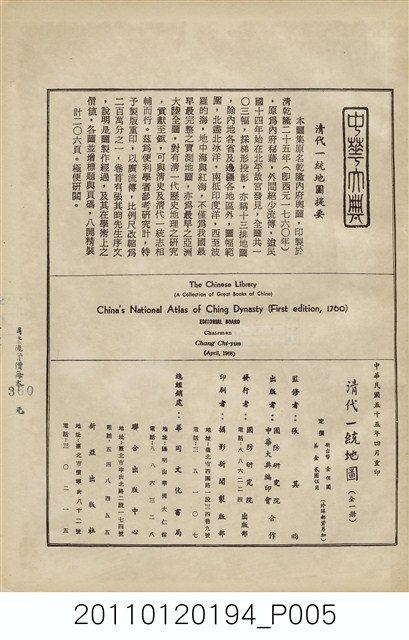 中華大典
清代一統地圖提要
本圖集原名乾隆內府輿圖,印製於
清乾隆二十五年(即西元一七六〇年)
,原爲內府秘藉,外間絕少流傳,迨民
國十四年始在北平故宮發見,全圖共一
〇三幅,採梯形投影,亦稱十三排地圖
,除內地各省及邊疆各地區外,圖幅範
圍,北盡北冰洋,南抵印度洋,西至波
羅的海,地中海與紅海,不僅爲我國最
早最完整之實測地圖,亦爲最早之亞洲
大陸全圖,對有清一代歷史地理之研究
,貢獻至鉅,可與清史及清代一統志相
輔而行。茲爲便利學者參考研究計,特
予製版重印,以廣流傳,比例尺改縮爲
二百萬分之一,卷首有張其昀先生序文
,說明是圖製作經過,及其在學術上之
價值,各圖並增標題與頁碼,八開精裝
計二〇六頁。極便研閱。
The Chinese Library
(A Collection of Great Books of China)
China's National Atlas of Ching Dynasty (First edition, 1760)
EDITORIAL BOARD
Chairman
Chang Chi-yun
(April, 1966)
中華民國五十五年四月重印
清代一統地圖(全一冊)
定價:新台幣 壹佰圓
美金 貳圓伍角 (外埠郵資另加)
監修者:張其昀
出版者:國防研究院 中華大典編印會 合作
發行者:國防研究院出版部
電話:八八六二二四
印刷者:攝影新聞製版部
地址:臺北市西園路一段三四巷九號
電話:三五一〇七
總經銷處:華岡文化書局
地址:陽明山華岡大仁館
電話:八八六三二八
聯合出版中心
地址:臺北市中山北路二段一七四號
電話:五四八四五五
新亞出版社
地址:臺北市懷寧街八十二號
電話:三〇二一五
360
元
20110120194_P005